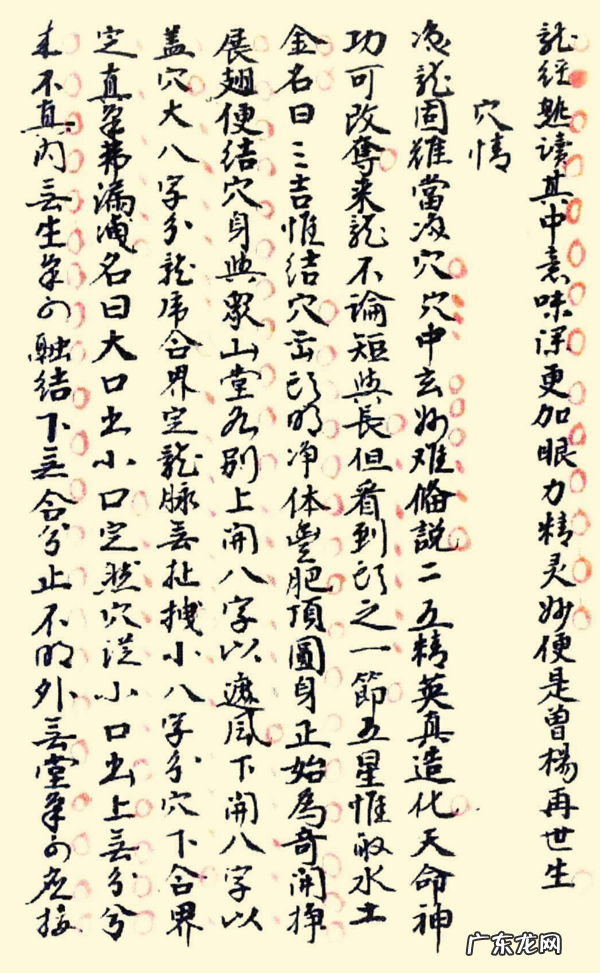 龍經熟讀其中意味深更加眼力精灵妙便是曾楊再世生
穴情
龍固難當穴穴中玄妙难俻説二五精英真造化天命神
功可改奪来龍不論短與長但看到頭之一節五星惟取水土
金名曰三吉惟结穴頭明净体豊肥頂圓身正始爲奇開挣
展翅便结穴身與眾山堂各别上開八字以遮風下開八字以
盖穴大八字分龍虎合界定龍脉無扯拽小八字分穴下合界
定真氣弗漏洩名曰大口出小口定然穴從小口出上無分兮
来不真内無生氣可融结下無合兮止不明外無堂氣可应接
广东龙网